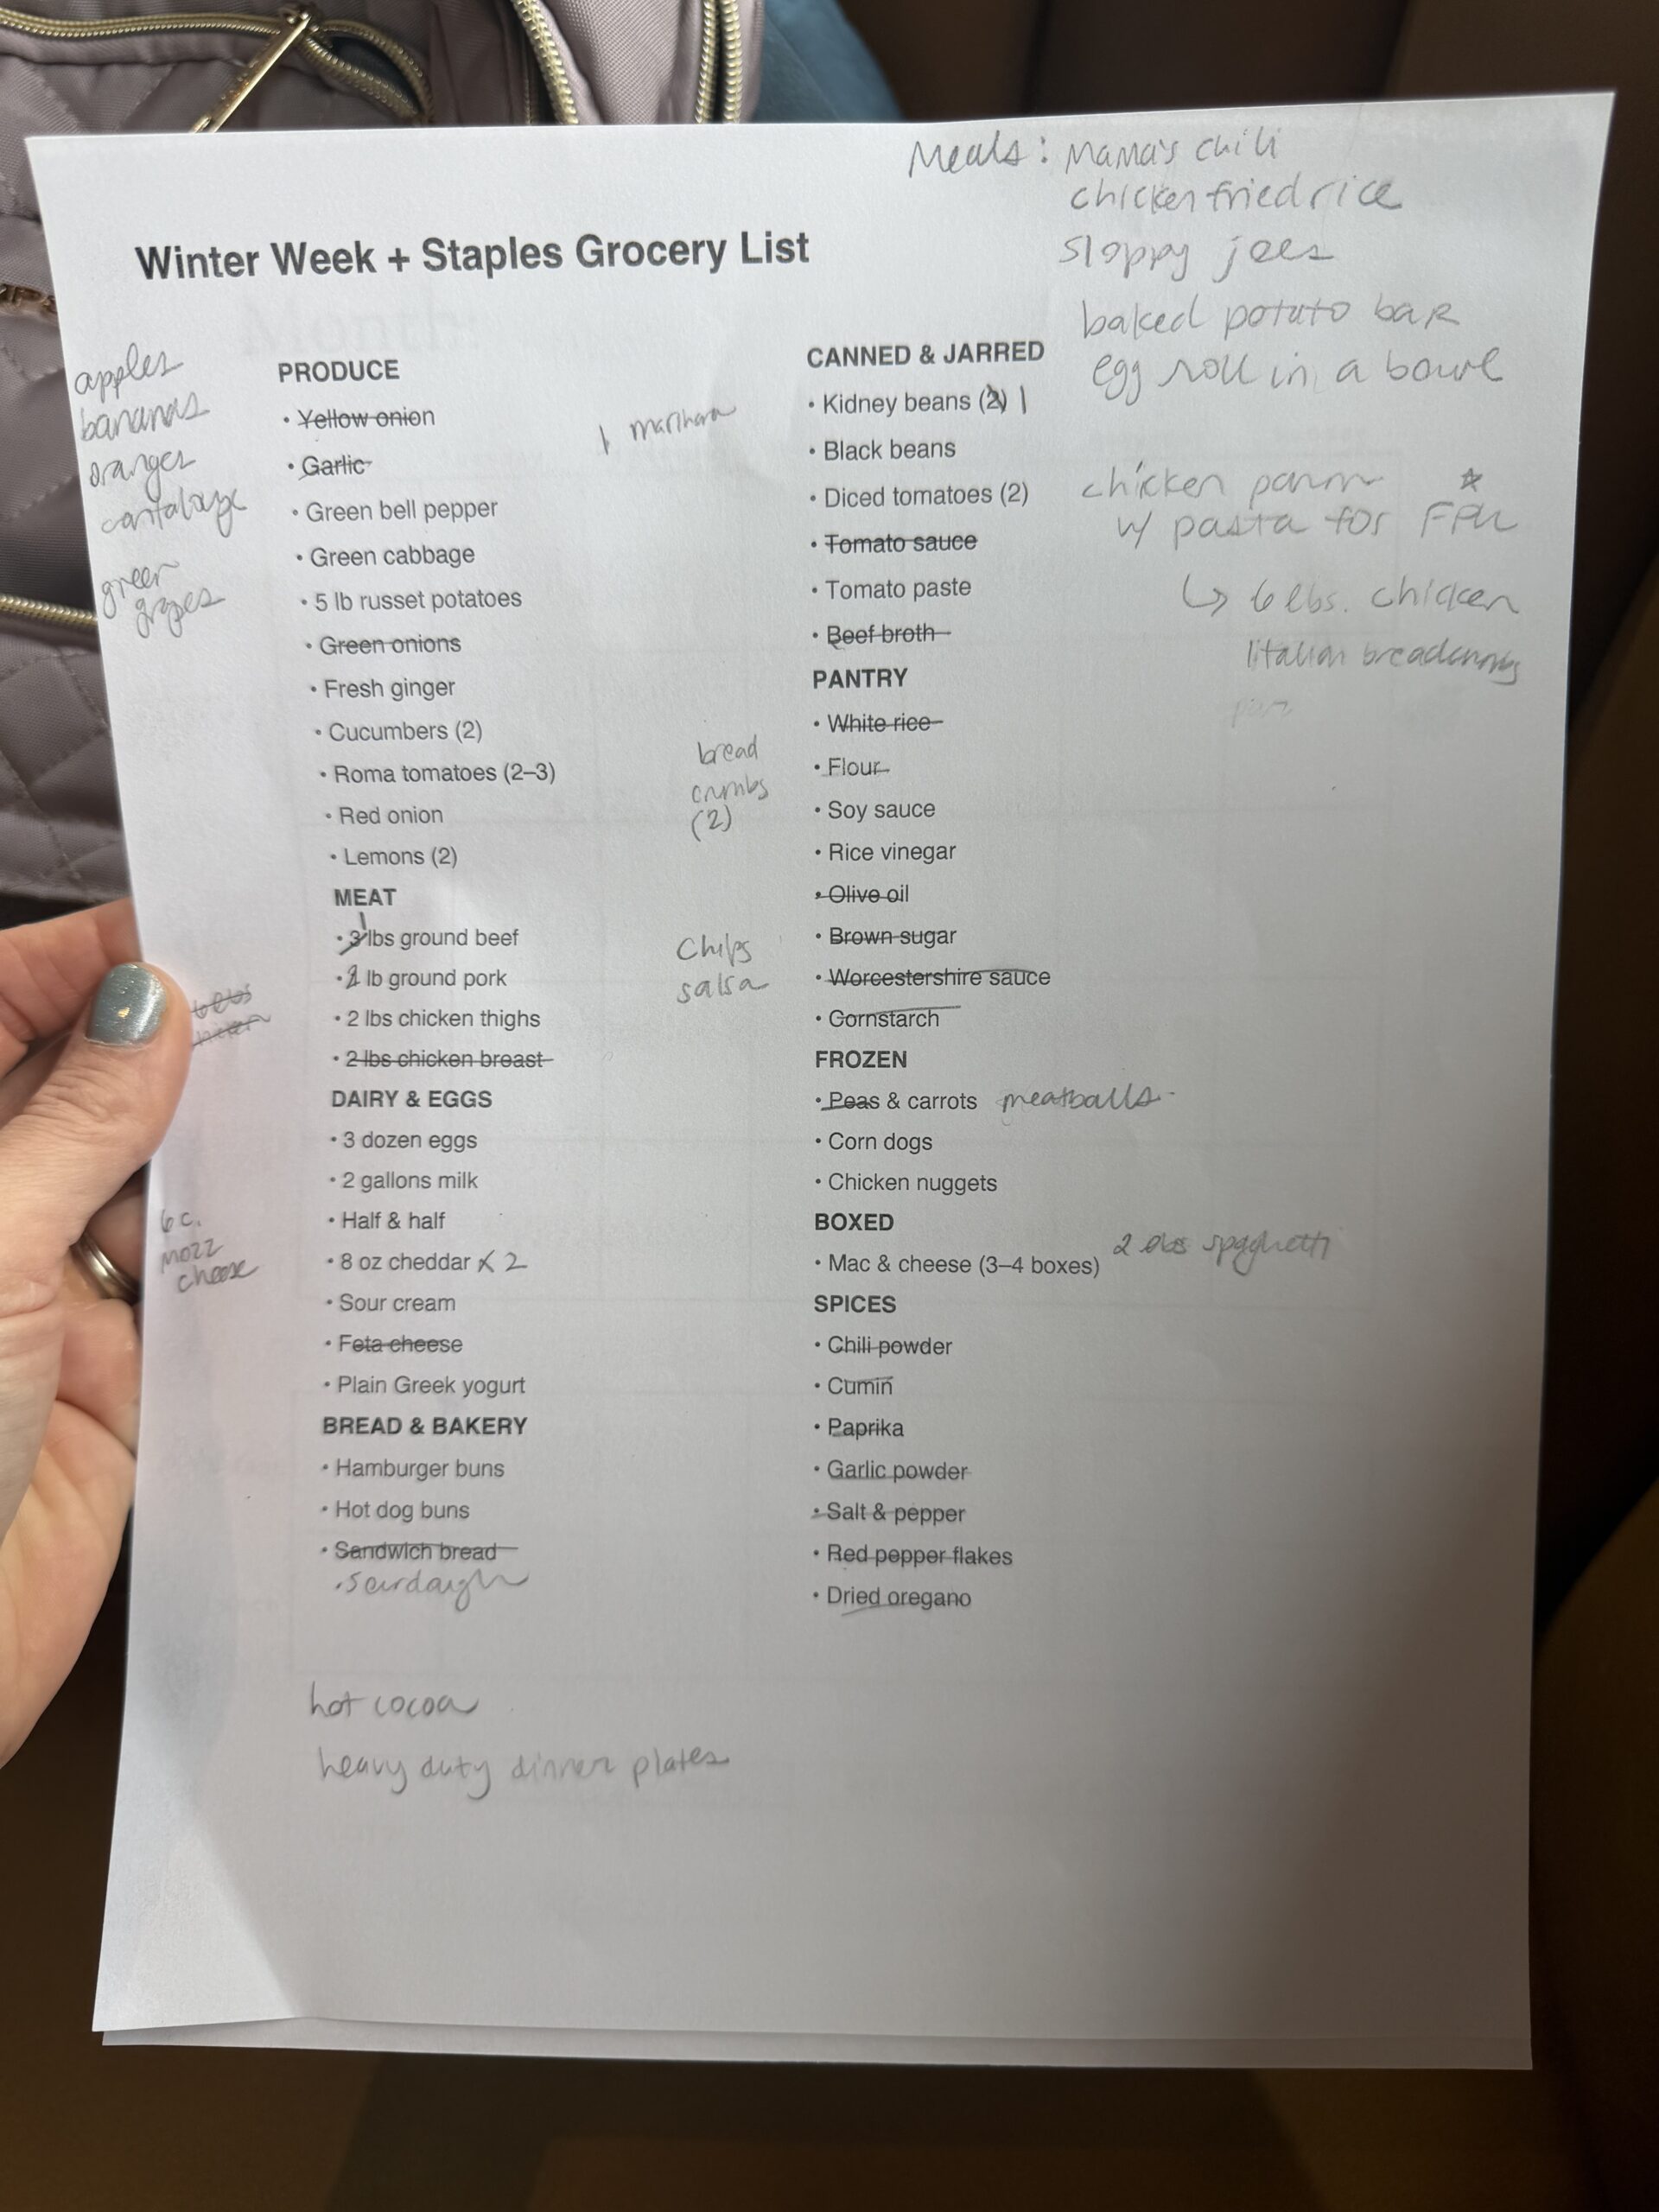 Meals: Mama's chili
chicken fried rice
sloppy joes
baked potato bar
egg roll in a bowl
chicken parm
w/ pasta for FPU
↳ 6 lbs. chicken
Italian breadcrumbs
Winter Week + Staples Grocery List
apples
bananas
oranges
cantaloupe
green
grapes
PRODUCE
• Yellow onion
• Garlic
• Green bell pepper
• Green cabbage
• 5 lb russet potatoes
• Green onions
• Fresh ginger
• Cucumbers (2)
• Roma tomatoes (2–3)
• Red onion
• Lemons (2)
MEAT
1
• 3 lbs ground beef
• 2 lb ground pork
• 2 lbs chicken thighs
• 2 lbs chicken breast
DAIRY & EGGS
• 3 dozen eggs
• 2 gallons milk
• Half & half
• 8 oz cheddar x 2
• Sour cream
• Feta cheese
• Plain Greek yogurt
6 c.
mozz
cheese
BREAD & BAKERY
• Hamburger buns
• Hot dog buns
• Sandwich bread
• sourdough
hot cocoa
heavy duty dinner plates
1 marinara
bread
crumbs
(2)
Chips
salsa
CANNED & JARRED
• Kidney beans (2) 1
• Black beans
• Diced tomatoes (2)
• Tomato sauce
• Tomato paste
• Beef broth
PANTRY
• White rice
• Flour
• Soy sauce
• Rice vinegar
• Olive oil
• Brown sugar
• Worcestershire sauce
• Cornstarch
FROZEN
• Peas & carrots meatballs
• Corn dogs
• Chicken nuggets
BOXED
• Mac & cheese (3–4 boxes) 2 lbs spaghetti
SPICES
• Chili powder
• Cumin
• Paprika
• Garlic powder
• Salt & pepper
• Red pepper flakes
• Dried oregano